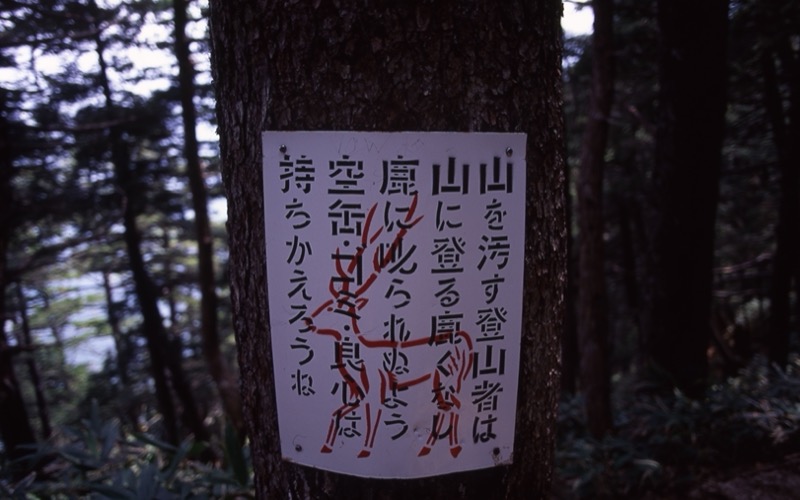 山を汚す登山者は
山に登る鹿ぐない
鹿に叱られぬよう
空缶・ゴミ・良心は
持ちかえろうね